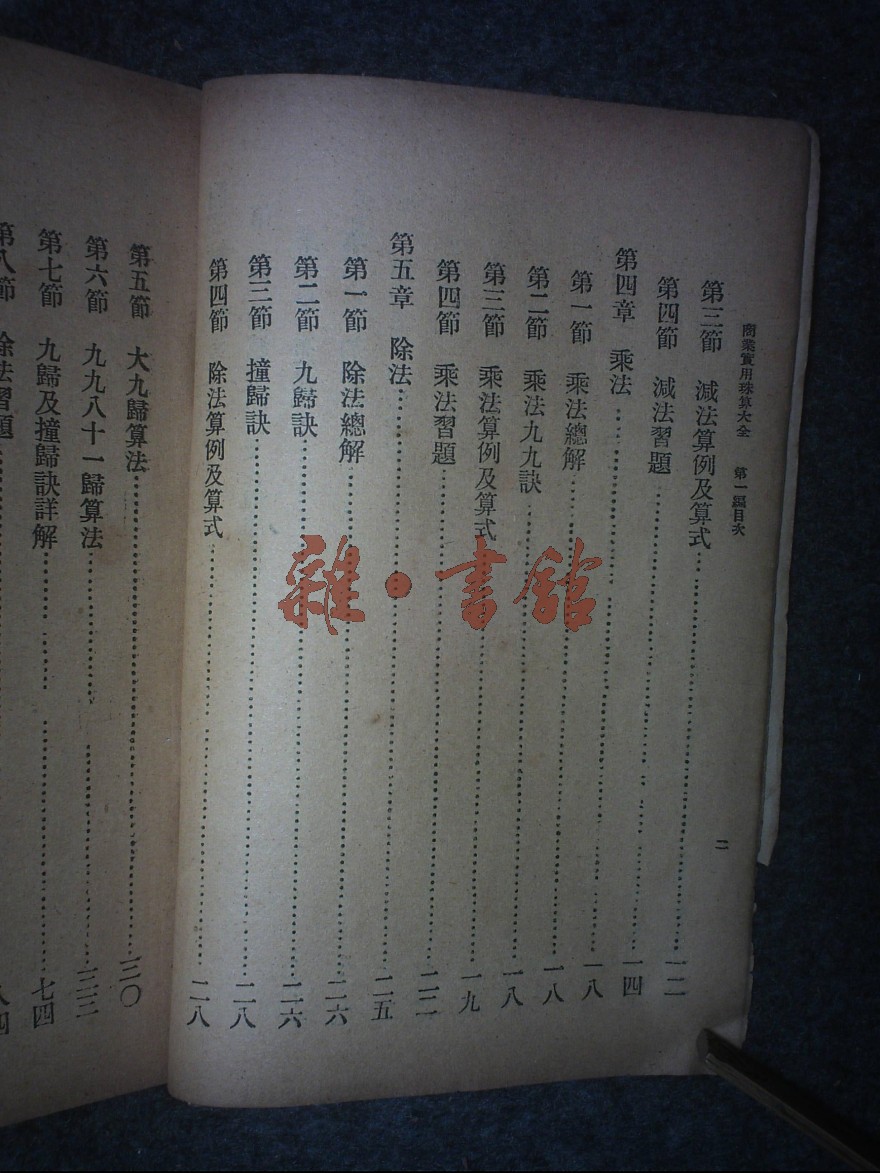 商業實用珠算大全 第一編目次 二
第三節 減法算例及算式……一二
第四節 減法習題……一四
第四章 乘法……一八
第一節 乘法總解……一八
第二節 乘法九九訣……一八
第三節 乘法算例及算式……一九
第四節 乘法習題……二二
第五章 除法……二五
第一節 除法總解……二六
第二節 九歸訣……二六
第三節 撞歸訣……二八
第四節 除法算例及算式……二八
第五節 大九歸算法……三〇
第六節 九九八十一歸算法……三三
第七節 九歸及撞歸訣詳解……七四
第八節 除法習題……八四
雜·書館